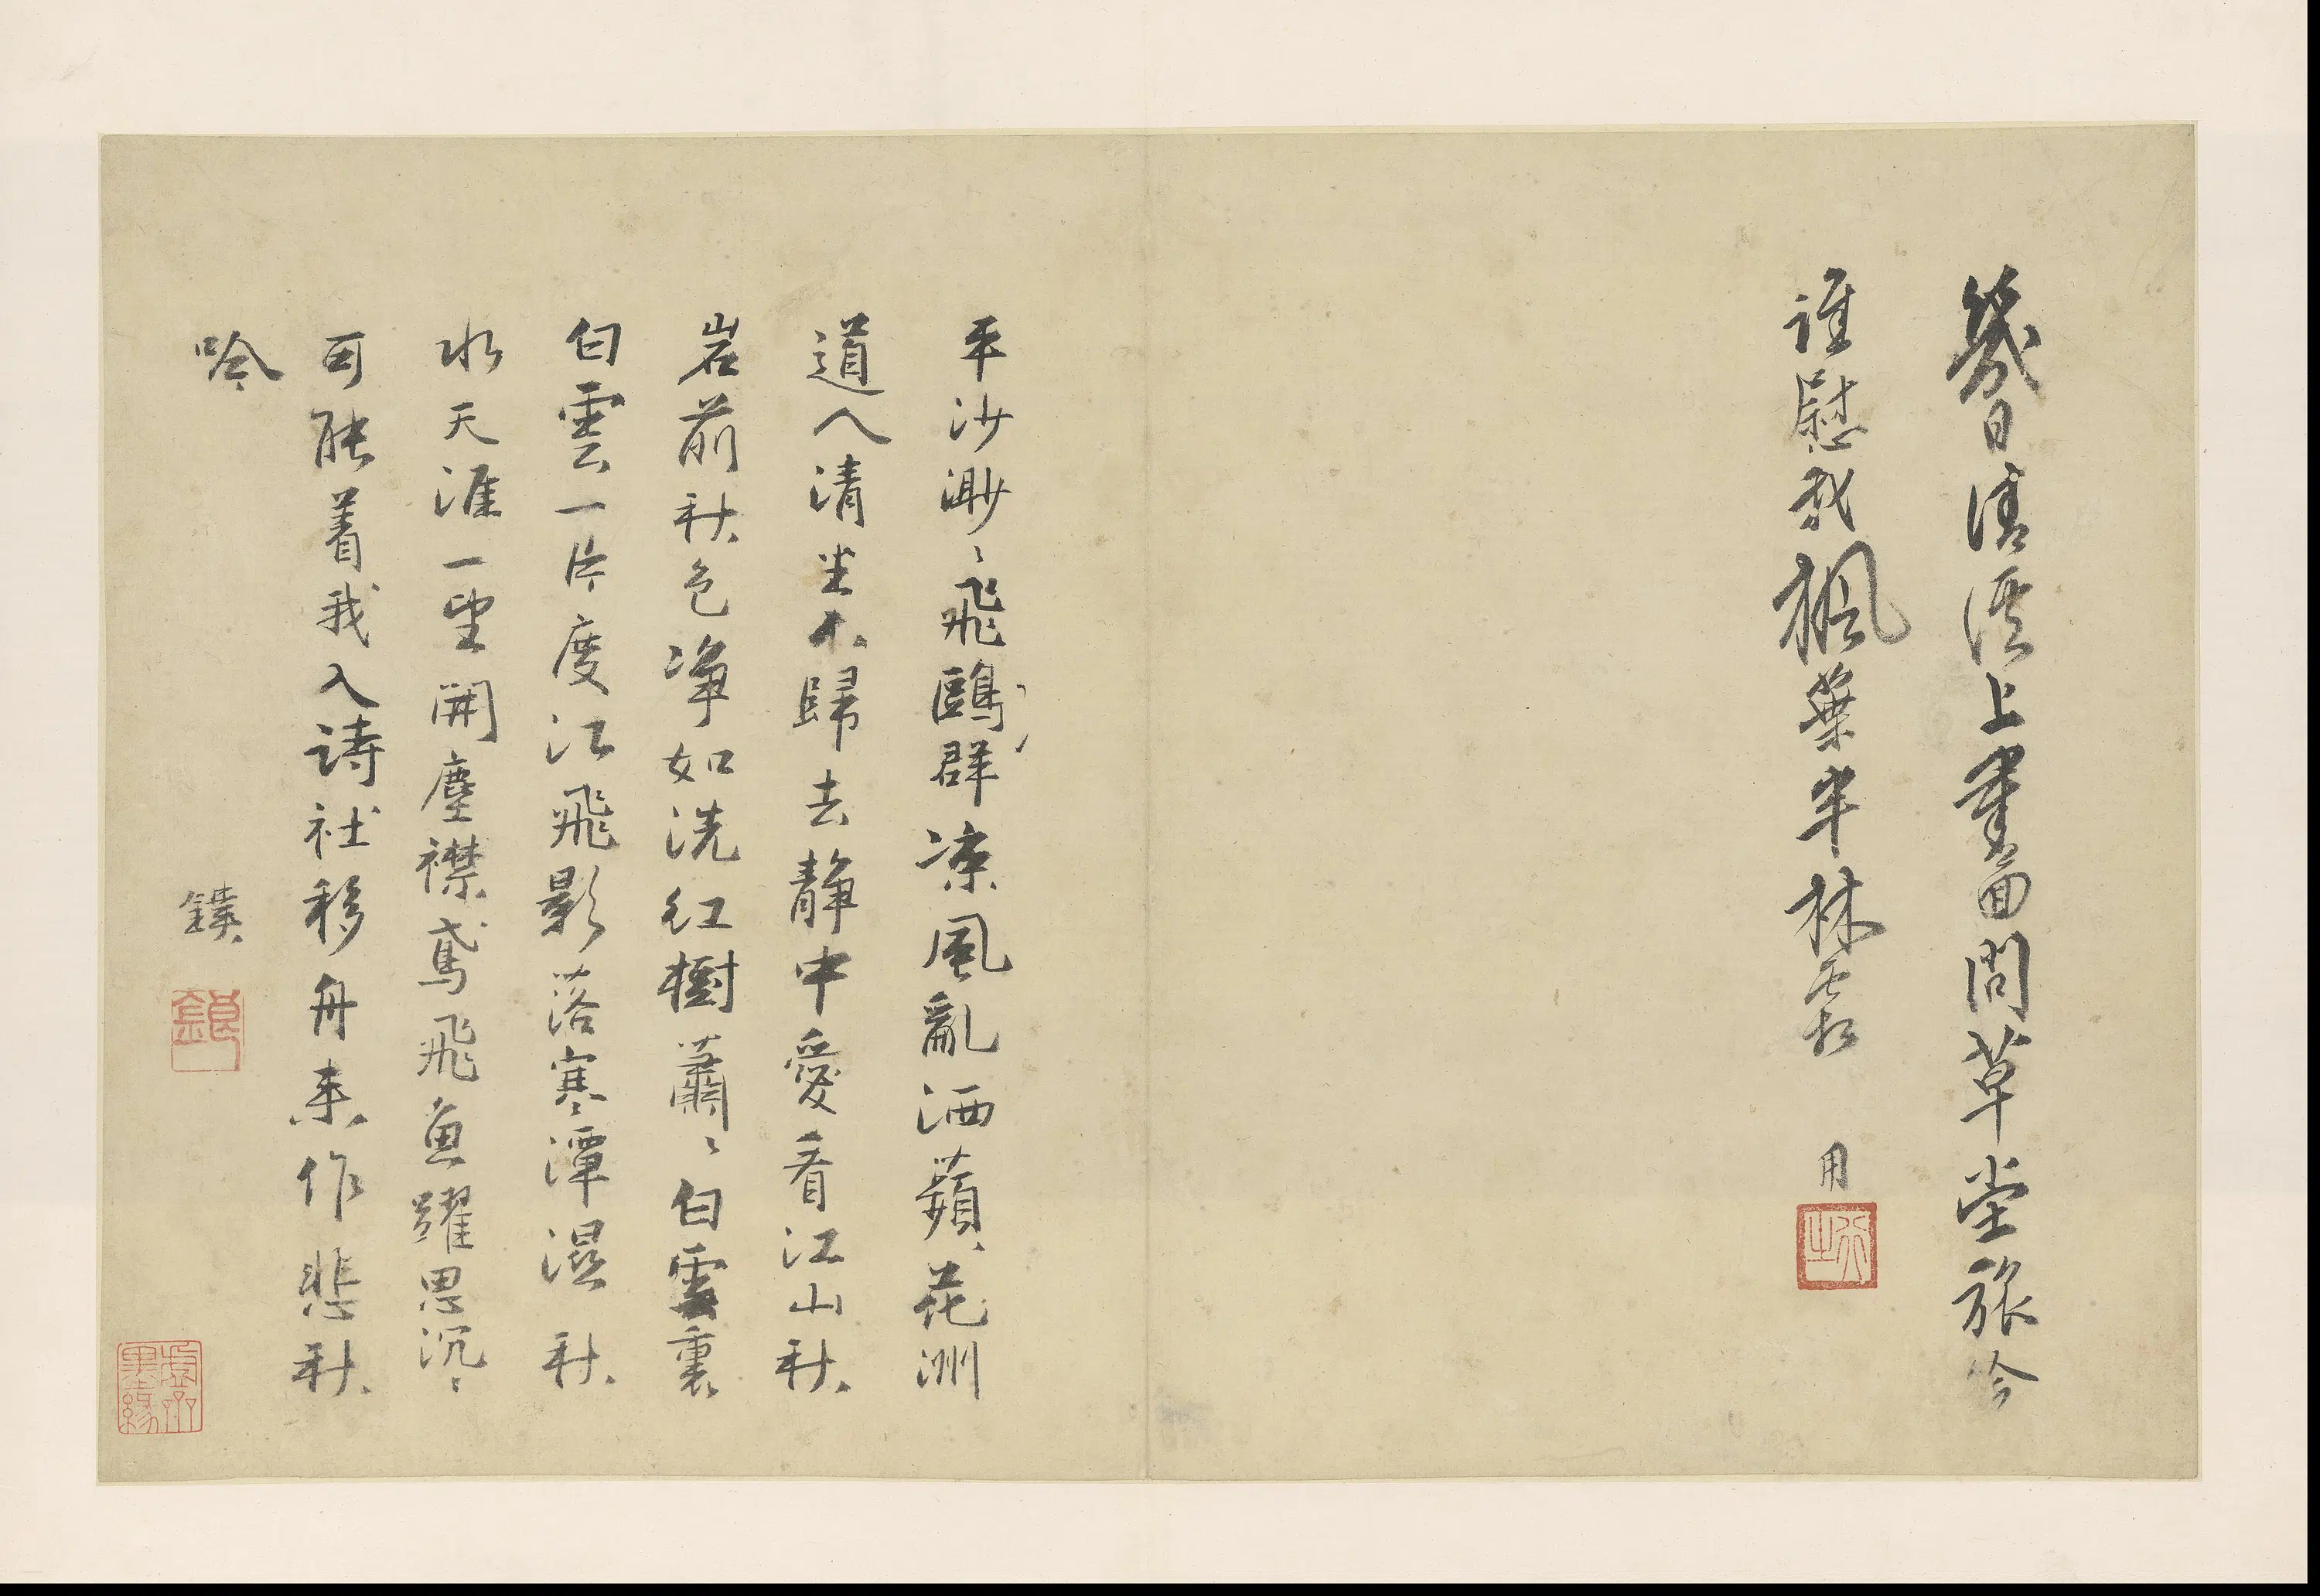 幾日清溪上重留問草堂旅吟
誰慰我楓葉半林霜 用
行之
平沙渺〻飛鷗群凉風亂洒蘋花洲
道人清坐不歸去靜中愛看江山秋
岩前秋色淨如洗紅樹蕭〻白雲裏
白雲一片度江飛影落寒潭濕秋
水天涯一望開塵襟鳶飛魚躍思沉〻
可能着我入詩社移舟來作悲秋
吟
虛齋墨緣